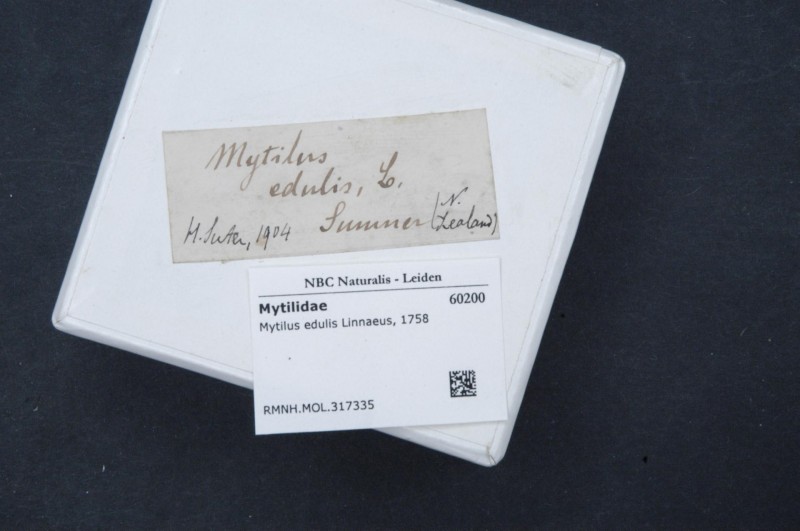 Mytilus
edulis, L.
Sumner (N. Zealand)
H. Suter, 1904
NBC Naturalis - Leiden
Mytilidae 60200
Mytilus edulis Linnaeus, 1758
RMNH.MOL.317335